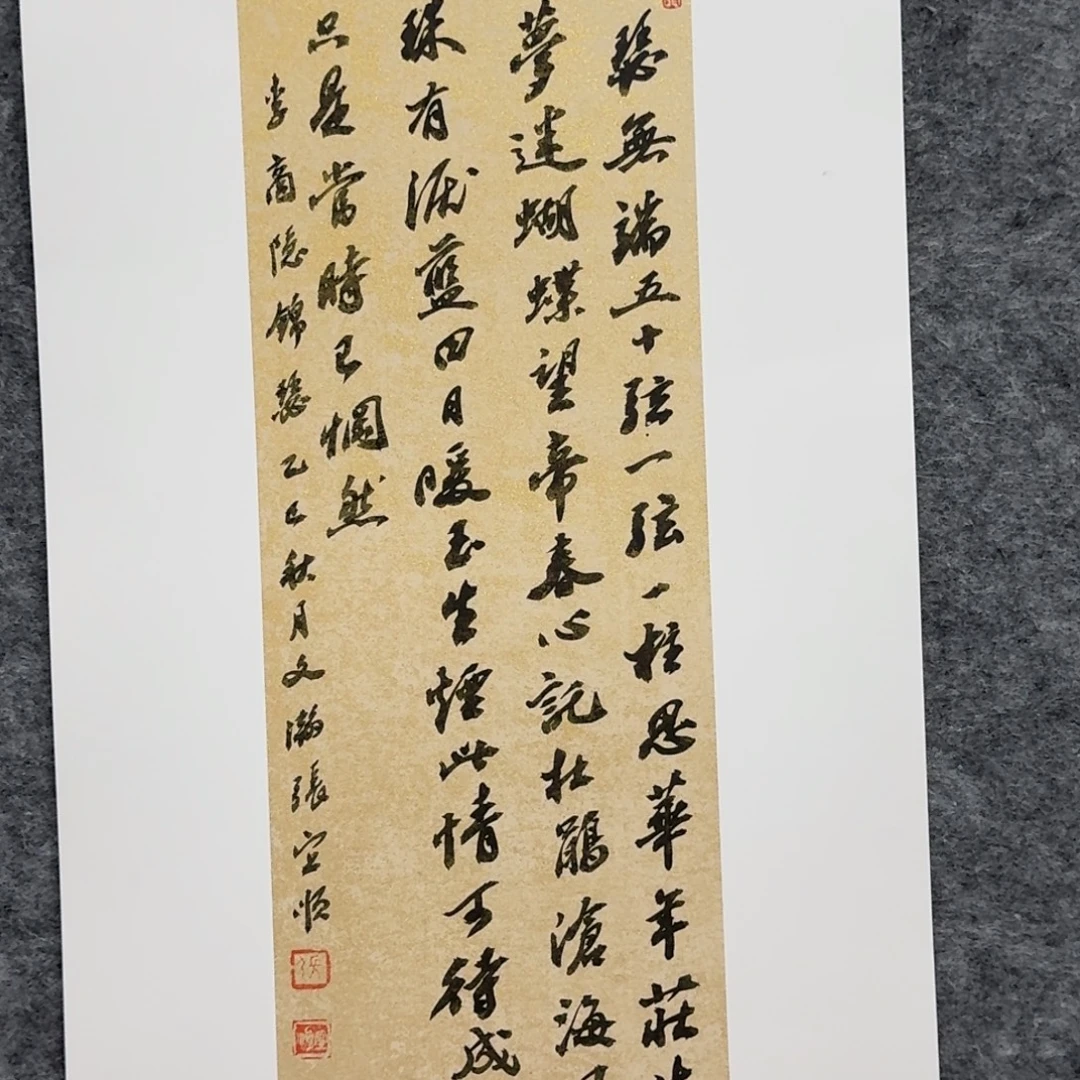 瑟無端五十弦一弦一柱思華年莊
夢迷蝴蝶望帝春心託杜鵑滄海
珠有淚藍田日暖玉生煙此情可待成
只是當時已惘然
李商隐錦瑟乙巳秋月文瀚張宜順